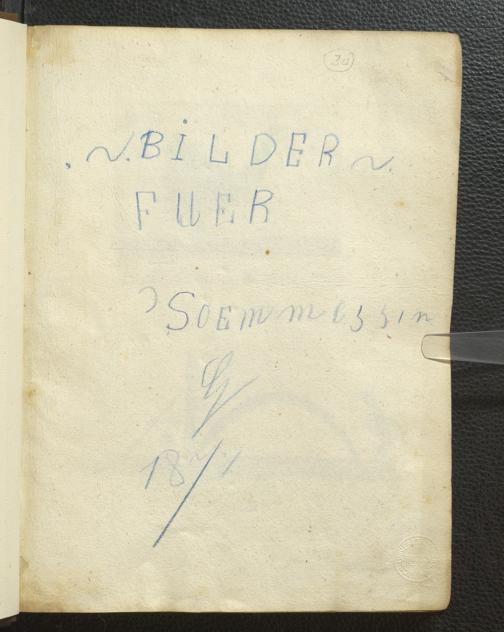 30
~. BILDER ~.
FUER
SOEMMESSIN
G